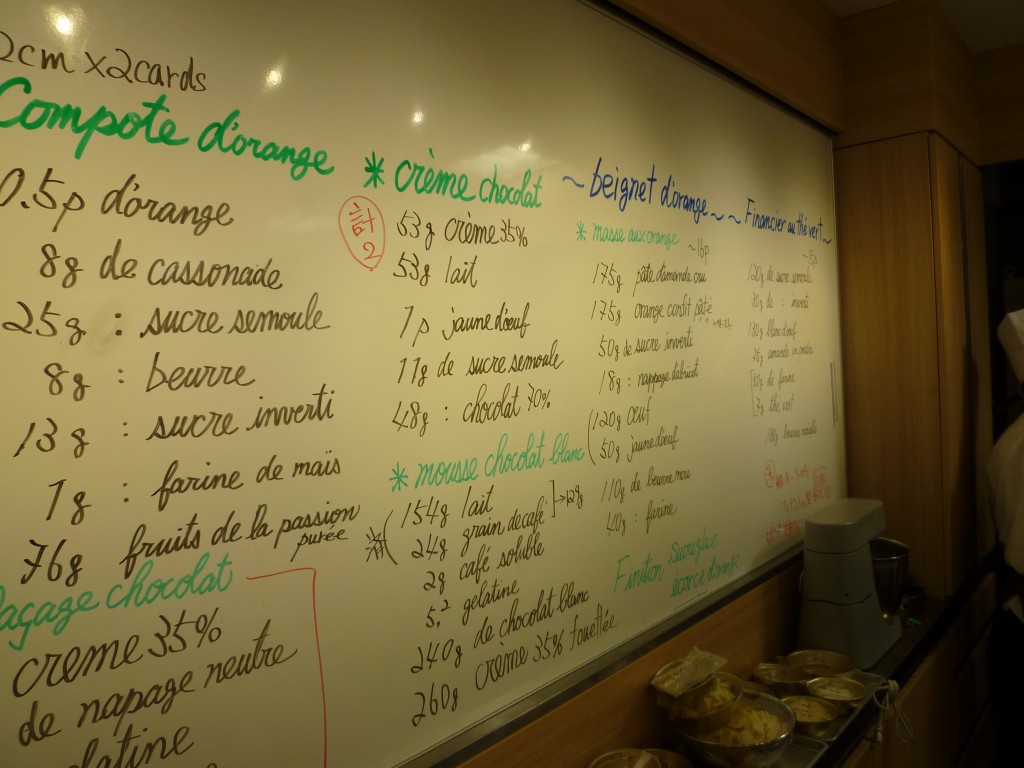 2cm x2cards
Compote d'orange
0.5p d'orange
8g de cassonade
25g : sucre semoule
8g : beurre
13g : sucre inverti
1g : farine de maïs
76g fruits de la passion
purée
açage chocolat
creme 35%
de napage neutre
latine
* crème chocolat
計
2
53g crème 35%
53g lait
1p jaune d'œuf
11g de sucre semoule
48g : chocolat 70%
* mousse chocolat blanc
154g lait
24g grain de café
2g café soluble
5.2 gelatine
240g de chocolat blanc
260g crème 35% fouettée
~ beignet d'orange ~
* masse aux orange
~16p
175g pâte d'amande cru
175g orange confit pâté
50g de sucre inverti
18g : nappage d'abricot
120g œuf
50g jaune d'œuf
110g de beurre mou
40g : farine
Finition sucre glace
écorce d'orange
~ Financier au thé vert ~
120g de sucre semoule
de : inverti
130g blanc d'œuf
de farine
thé vert